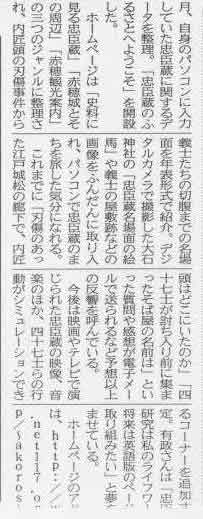 月、自身のパソコンに入力
していた忠臣蔵に関するデ
ータを整理。「忠臣蔵のふ
るさとへようこそ」を開設
した。
ホームページは「史料に
見る忠臣蔵」「赤穂城とそ
の周辺」「赤穂観光案内」
の三つのジャンルに整理さ
れ、内匠頭の刃傷事件から
義士たちの切腹までの名場
面を年表形式で紹介。デジ
タルカメラで撮影した大石
神社の「忠臣蔵名場面の絵
馬」や義士の屋敷跡などの
画像をふんだんに取り入
れ、パソコンで忠臣蔵のま
ちを旅した気分になれる。
これまでに「刃傷のあっ
た江戸城松の廊下で、内匠
頭はどこにいたのか」「四
十七士が討ち入り前に集ま
ったそば屋の名前は」とい
った質問や感想が電子メー
ルで送られるなど予想以上
の反響を呼んでいる。
今後は映画やテレビで演
じられた忠臣蔵の映像、音
楽のほか、四十七士らの行
動がシミュレーションでき
るコーナーを追加す
定。有政さんは「忠臣
研究は私のライフワー
将来は英語版のペー
取り組みたい」と夢
ませている。
ホームページのア
は、http://
.net117.o
p/~akoros